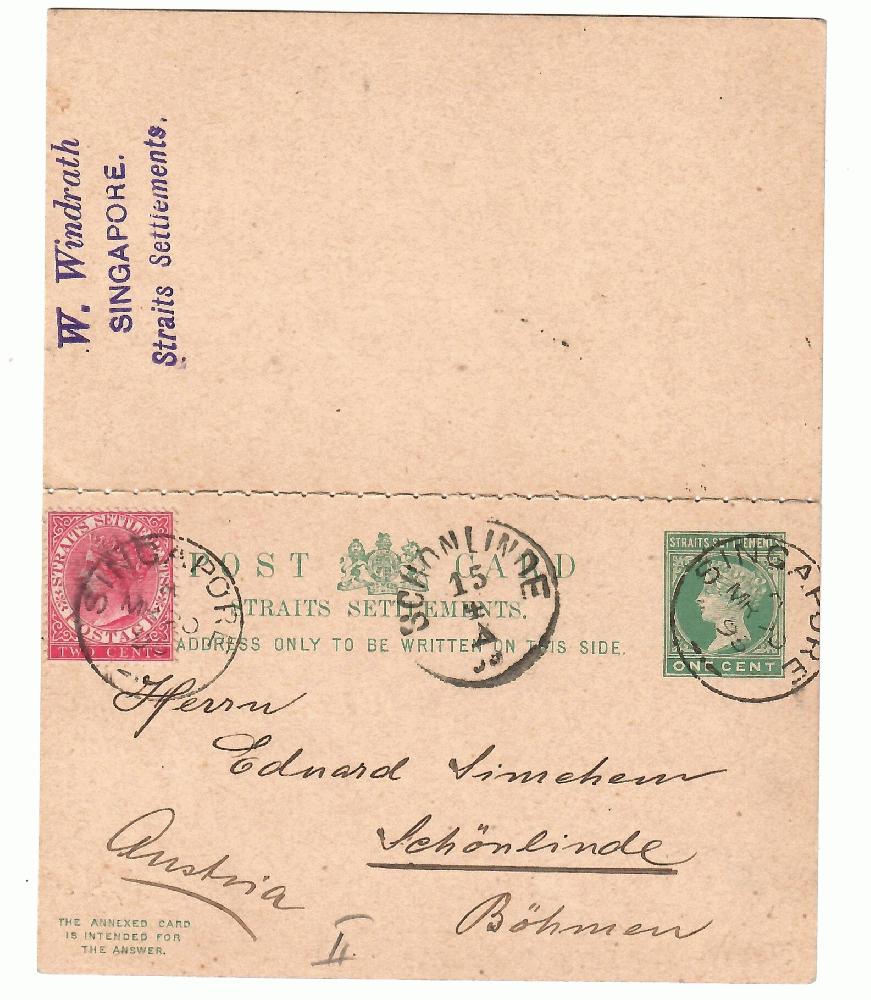 W. Windrath
SINGAPORE.
Straits Settlements.
STRAITS SETTLEMENTS
POSTAGE
TWO CENTS
SINGAPORE
POST CARD
STRAITS SETTLEMENTS.
ADDRESS ONLY TO BE WRITTEN ON THIS SIDE.
SCHÖNLINDE
15
4
STRAITS SETTLEMENTS
ONE CENT
SINGAPORE
MR
Herrn
Eduard
Schönlinde
Austria
Böhmen
THE ANNEXED CARD
IS INTENDED FOR
THE ANSWER.
II